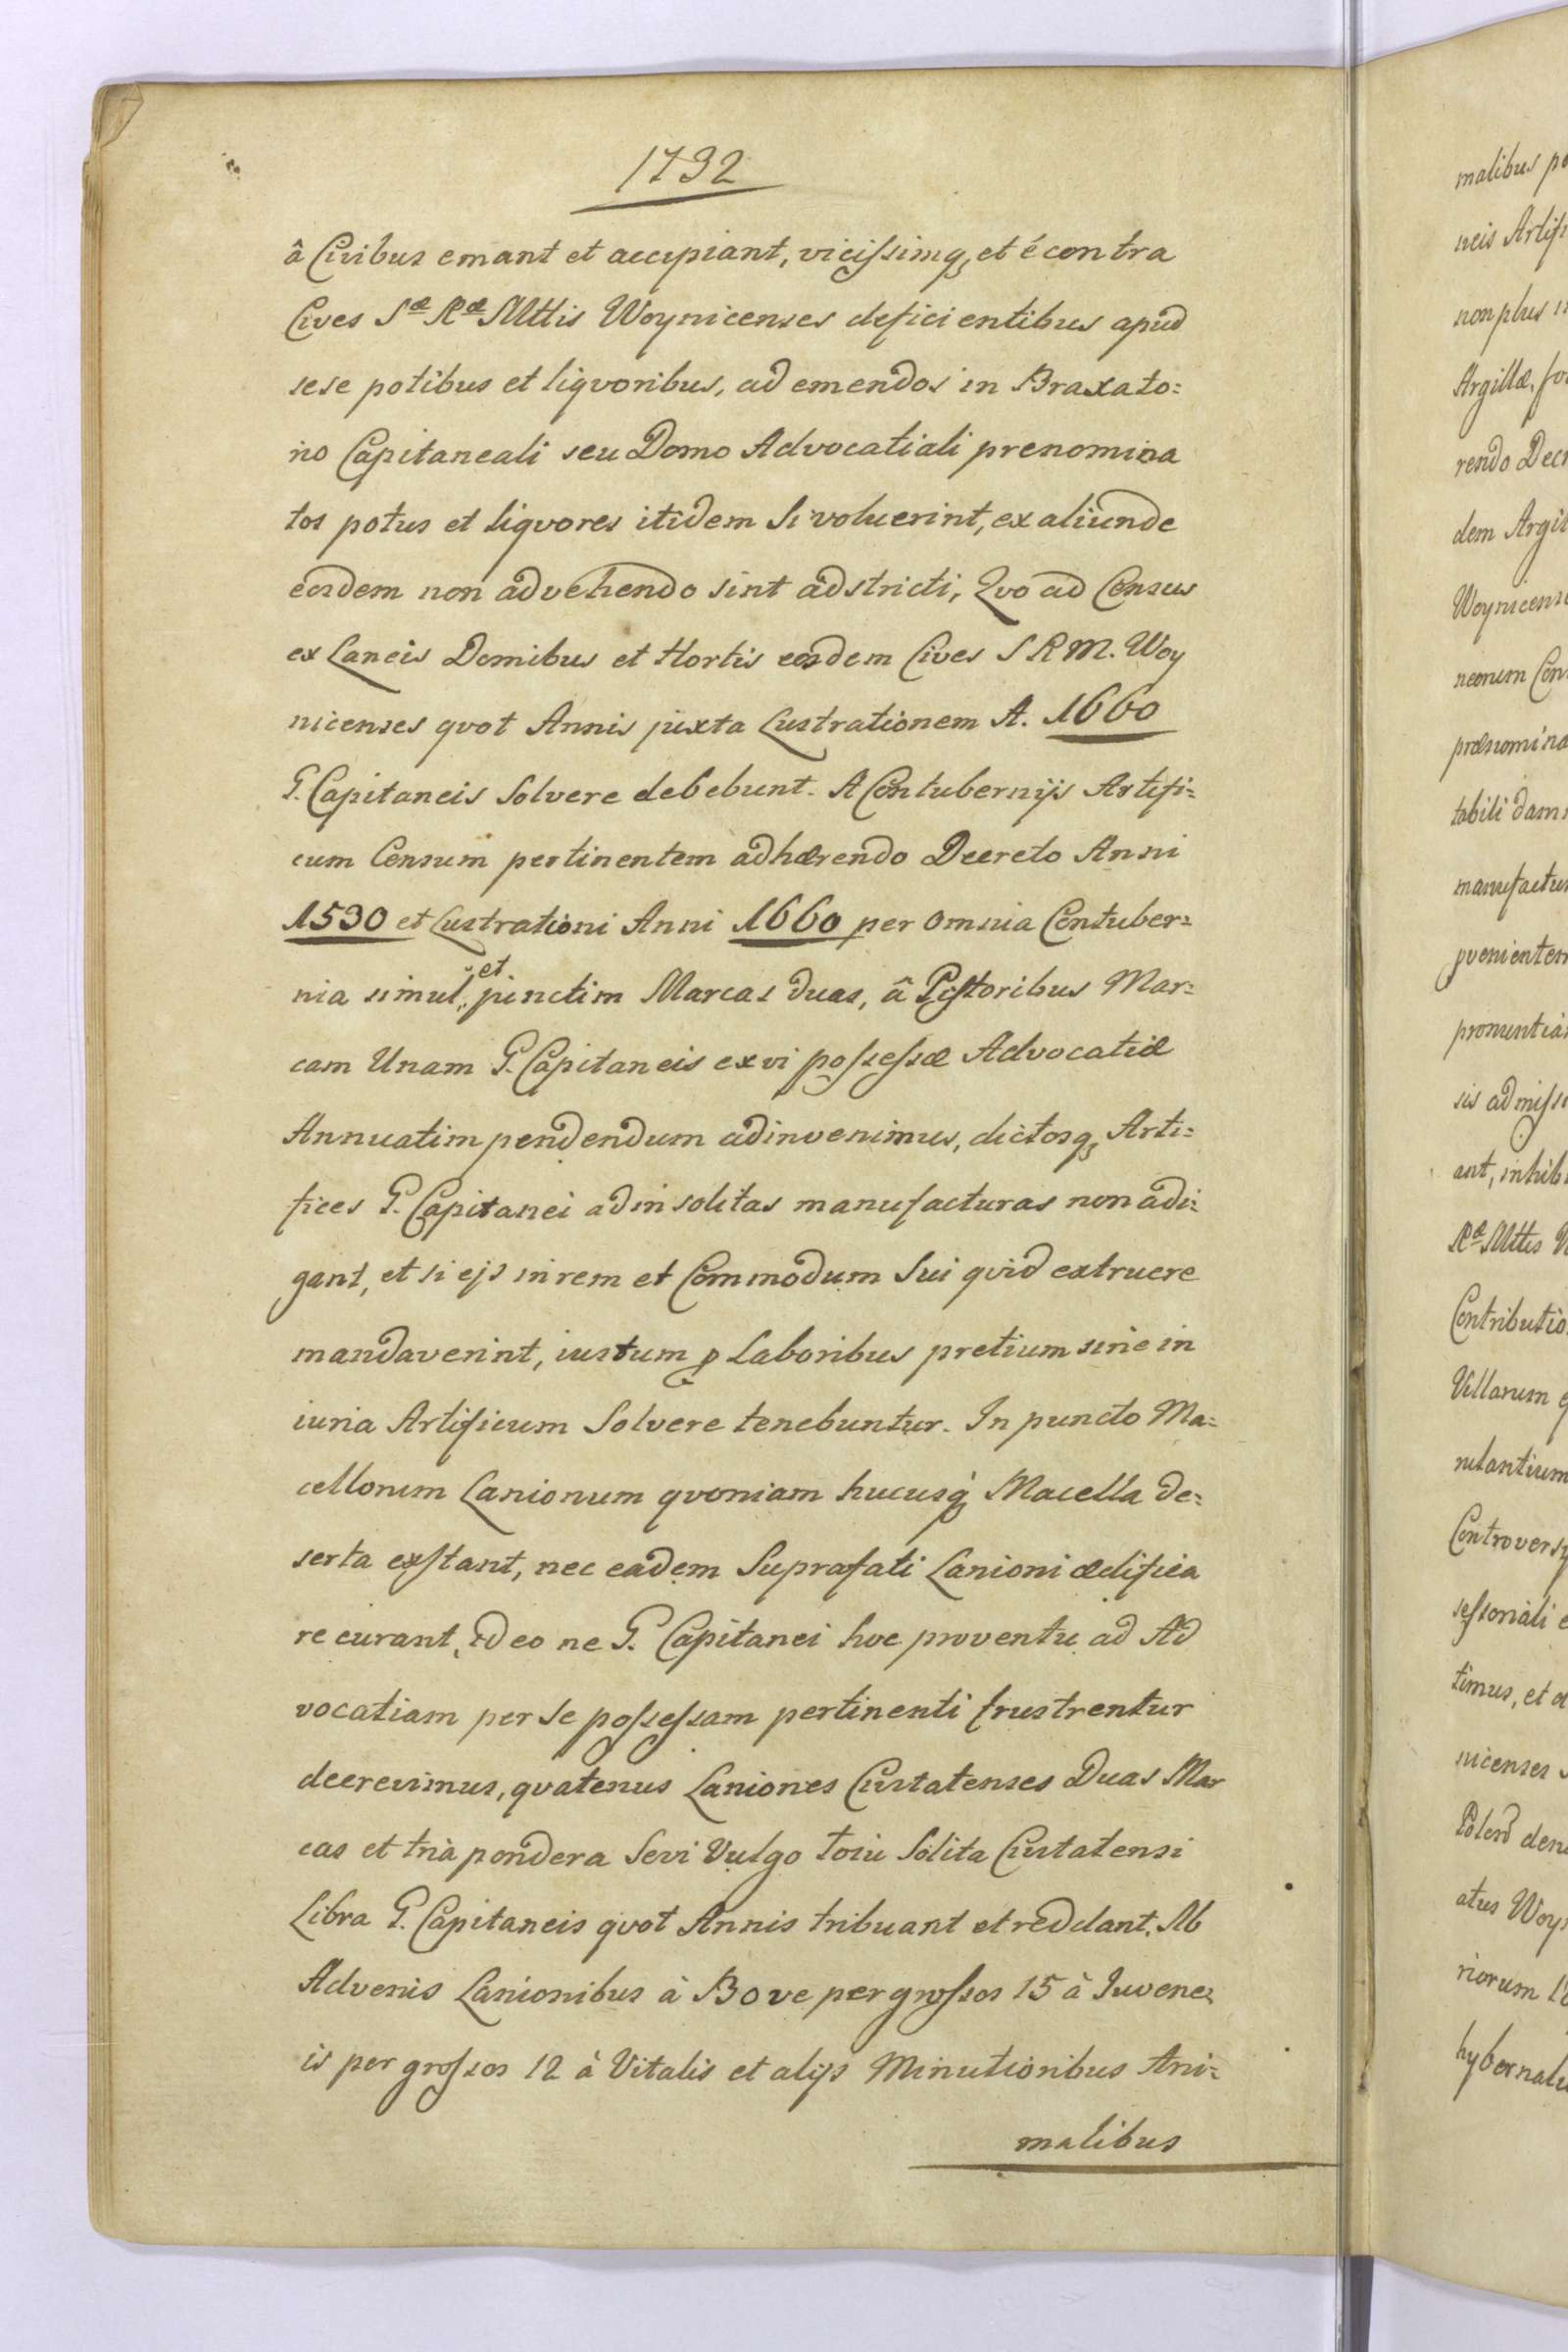 1732
â Civibus emant et accipiant, vicissimq, et é contra
Cives Sæ Ræ Mttis Woynicenses deficientibus apud
sese potibus et liqvoribus, ad emendos in Braxato=
rio Capitaneali seu Domo Advocatiali prenomina
tos potus et liqvores itidem Si voluerint, ex aliunde
eosdem non advehendo sint adstricti, Qvo ad Census
ex Laneis Domibus et Hortis eosdem Cives S R M. Woy
nicenses qvot Annis juxta Lustrationem A. 1660
G. Capitaneis Solvere debebunt. A Contubernijs Artifi=
cum Censum pertinentem adhærendo Decreto Anni
1530 et Lustrationi Anni 1660 per omnia Contuber=
nia simul, et junctim Marcas duas, â Pistoribus Mar=
cam Unam G. Capitaneis ex vi possessæ Advocatiæ
Annuatim pendendum adinvenimus, dictosq, Arti=
fices G. Capitanei ad insolitas manufacturas non adi=
gant, et si ejs in rem et Commodum Sui qvid extruere
mandaverint, iustum p Laboribus pretium sine in
iuria Artificum Solvere tenebuntur. In puncto Ma=
cellorum Lanionum qvoniam hucusq, Macella de=
serta exstant, nec eadem Suprafati Lanioni ædifica
re curant, Ideo ne G. Capitanei hoc proventu ad Ad
vocatiam per se possessam pertinenti frustrentur
decrevimus, qvatenus Laniones Civitatenses Duas Mar
cas et tria pondera Sevi Vulgo Toiu Solita Civitatensi
Libra G. Capitaneis qvot Annis tribuant et reddant. Ab
Advenis Lanionibus à Bove per grossos 15 à Juvenc
is per grossos 12 à Vitulis et alijs Minutioribus Ani=
malibus
malibus
neis
non plus
Argillæ,
rendo
dem
prænomina
tabili
manufactu
sis
ant,
Ræ Mttis
Contributio
Villarum
Controvers
timus, et
nicenses
atus Woy
riorum